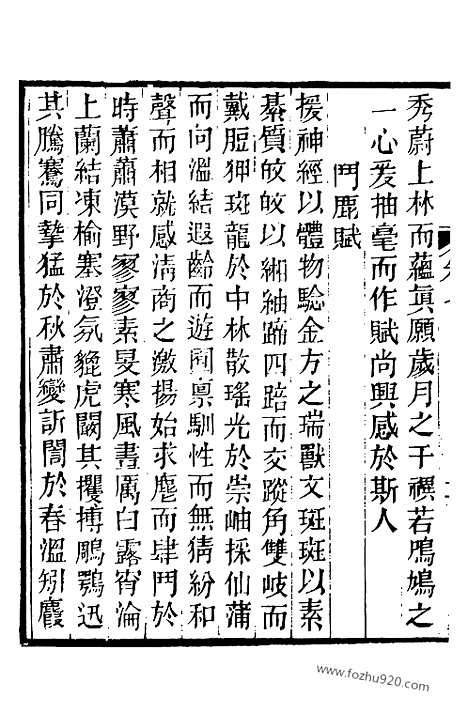 秀蔚上林而蘊眞願歲月之千禩若鳲鳩之
一心爰抽毫而作賦尚興感於斯人
鬥鹿賦
援神經以體物驗金方之瑞獸文斑斑以素
綦質皎皎以緗紬蹄四踣而交蹤角雙岐而
戴脰狎斑龍於中林散瑤光於崇岫採仙蒲
而向溫結遐齡而遊囿稟馴性而無猜紛和
聲而相就感淸商之激揚始求麀而肆鬥於
時蕭蕭漠野寥寥素旻寒風晝厲白露宵淪
上蘭結凍榆塞澄氛貔虎闞其攫搏鵰鶚迅
其騰騫同摯猛於秋肅變訢誾於春溫矧麚
www.fozhu920.com